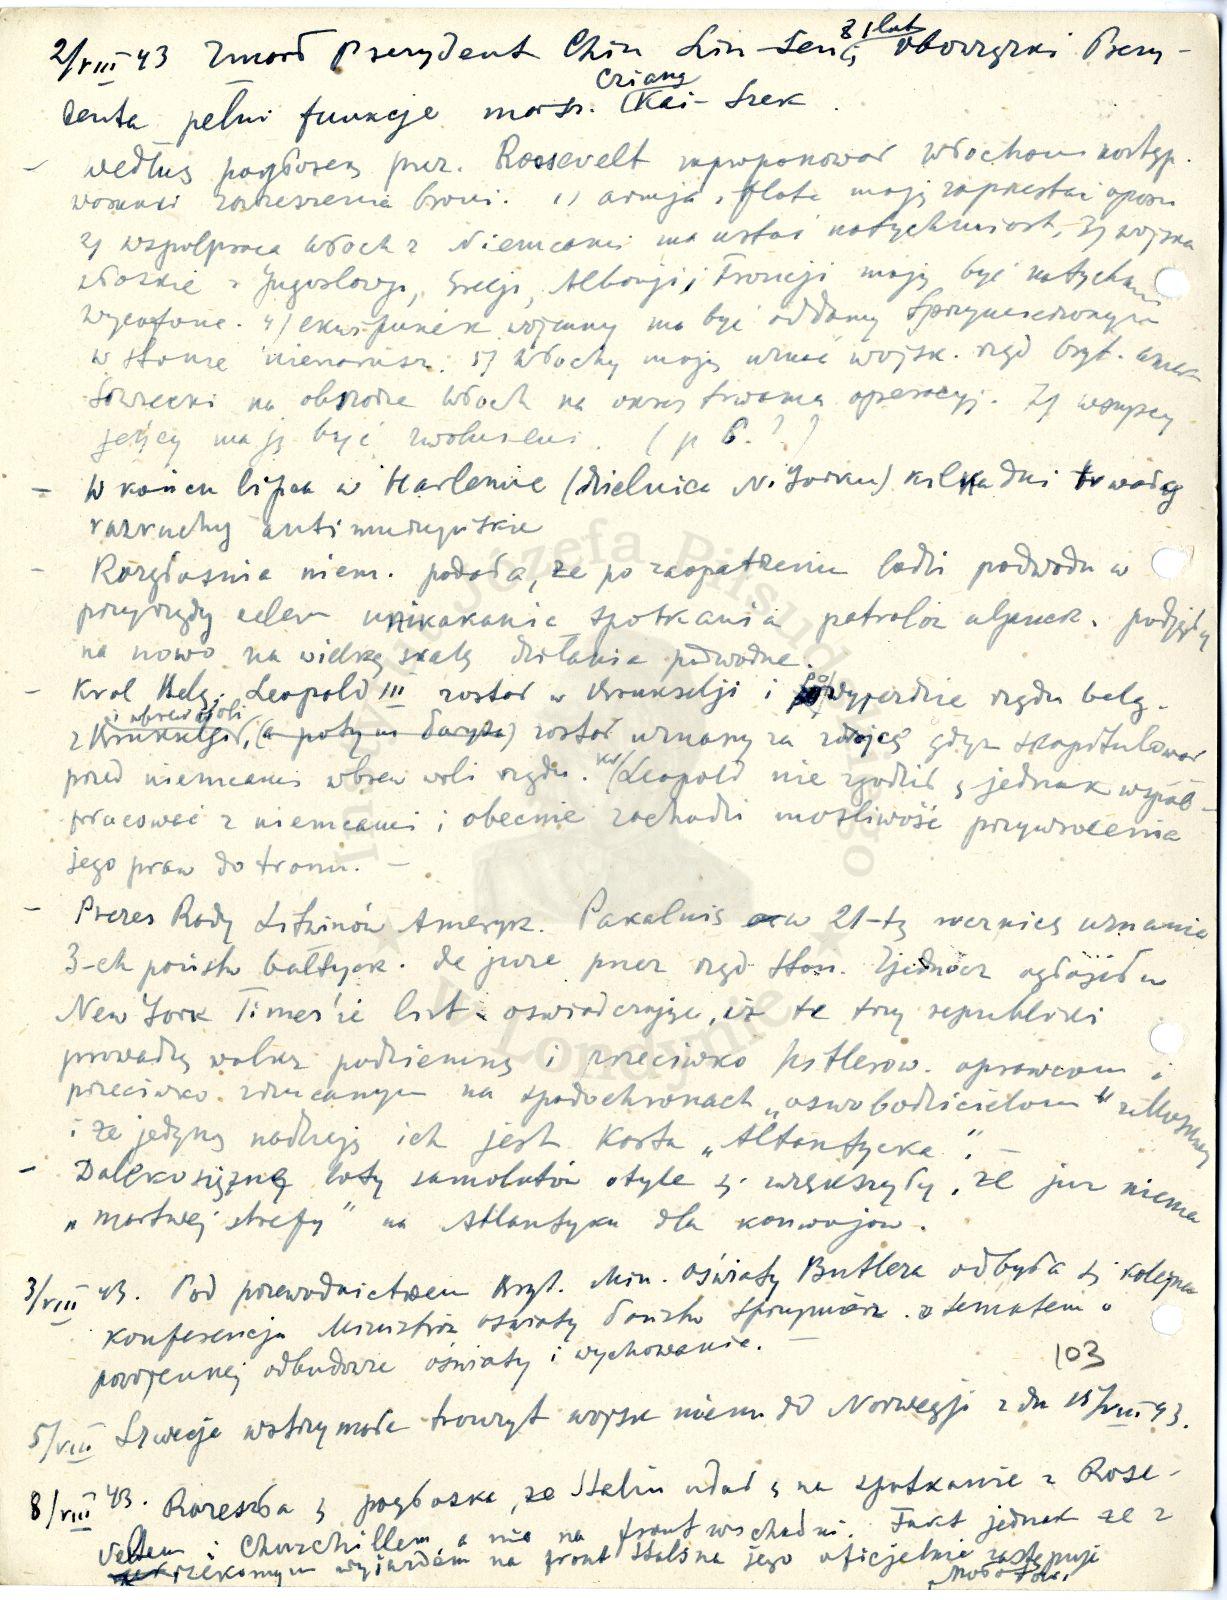 2/VIII 43 Zmarł Prezydent Chin Lin-Sen, obowiązki Prezy-
denta pełni funkcje marsz. Cziang Kai-Szek.
- według pogłosek prez. Roosevelt zaproponował Włochom następ.
warunki zawieszenia broni. 1) armja i flota mają zaprzestać oporu
2) współpraca Włoch z Niemcami ma ustać natychmiast, 3) wojska
włoskie z Jugosławji, Grecji, Albanji i Francji mają być natychm.
wycofane. 4) ekwipunek wojenny ma być oddany Sprzymierzonym
w stanie nienarusz. 5) Włochy mają uznać wojsk. rząd bryt. amer.
sowiecki na obszarze Włoch na okres trwania operacyj. 7) wszyscy
jeńcy mają być zwolnieni. (p 6.??)
- W końcu lipca w Harlemie (dzielnica N. Yorku) kilka dni trwały
rozruchy antimurzyńskie
- Rozgłośnia niem. podała, że po zaopatrzeniu łodzi podwodn w
przyrządy celem unikakania spotkania patroloz aljanck. podjęły
na nowo na wielką skalę działania podwodne.
- Król Belg. Leopold III został w Brukselji i po wyjeździe rządu belg.
z Brukselji, i wbrew woli (a potym Paryża) został uznany za zdrajcę gdyż skapitulował
przed niemcami wbrew woli rządu. Kr/Leopold nie zgodził ę jednak współ-
pracować z niemcami i obecnie zachodzi możliwość przywrócenia
jego praw do tronu. -
- Prezes Rady Litwinów Ameryk. Pakalnis w 21-tą rocznicę uznania
3-ch państw bałtyck. de jure przez rząd Stan. Zjednocz ogłosił w
New York Times'ie list oświadczając, iż te trzy republiki
prowadzą walkę podziemną i przeciwko hitlerow. oprawcom i
przeciwko zrzucanym na spadochronach "oswobodzicielom" z Moskwy
i że jedyną nadzieją ich jest Karta "Altantycka". -
- Dalekosiężne loty samolotów o tyle ę zwiększyły, że już niema
"martwej strefy" na Atlantyku dla konwojów.
3/VIII 43. Pod przewodnictwem Bryt. Min. oświaty Butlera odbyła ę kolejna
konferencja Ministrów oświaty państw Sprzymierz. z tematem o
powojennej odbudowie oświaty i wychowania. -
103
5/VIII Szwecja wstrzymała tranzyt wojsk niem. do Norwegji z dn 15/VIII 43.
8/VIII 43. Rozeszła ę pogłoska, że Stalin udał ę na spotkanie z Rose-
veltem i Churchillem a nie na front wschodni. Fakt jednak że z
rzekomym wyjazdem na front Stalina jego oficjalnie zastępuje
Mołotow.